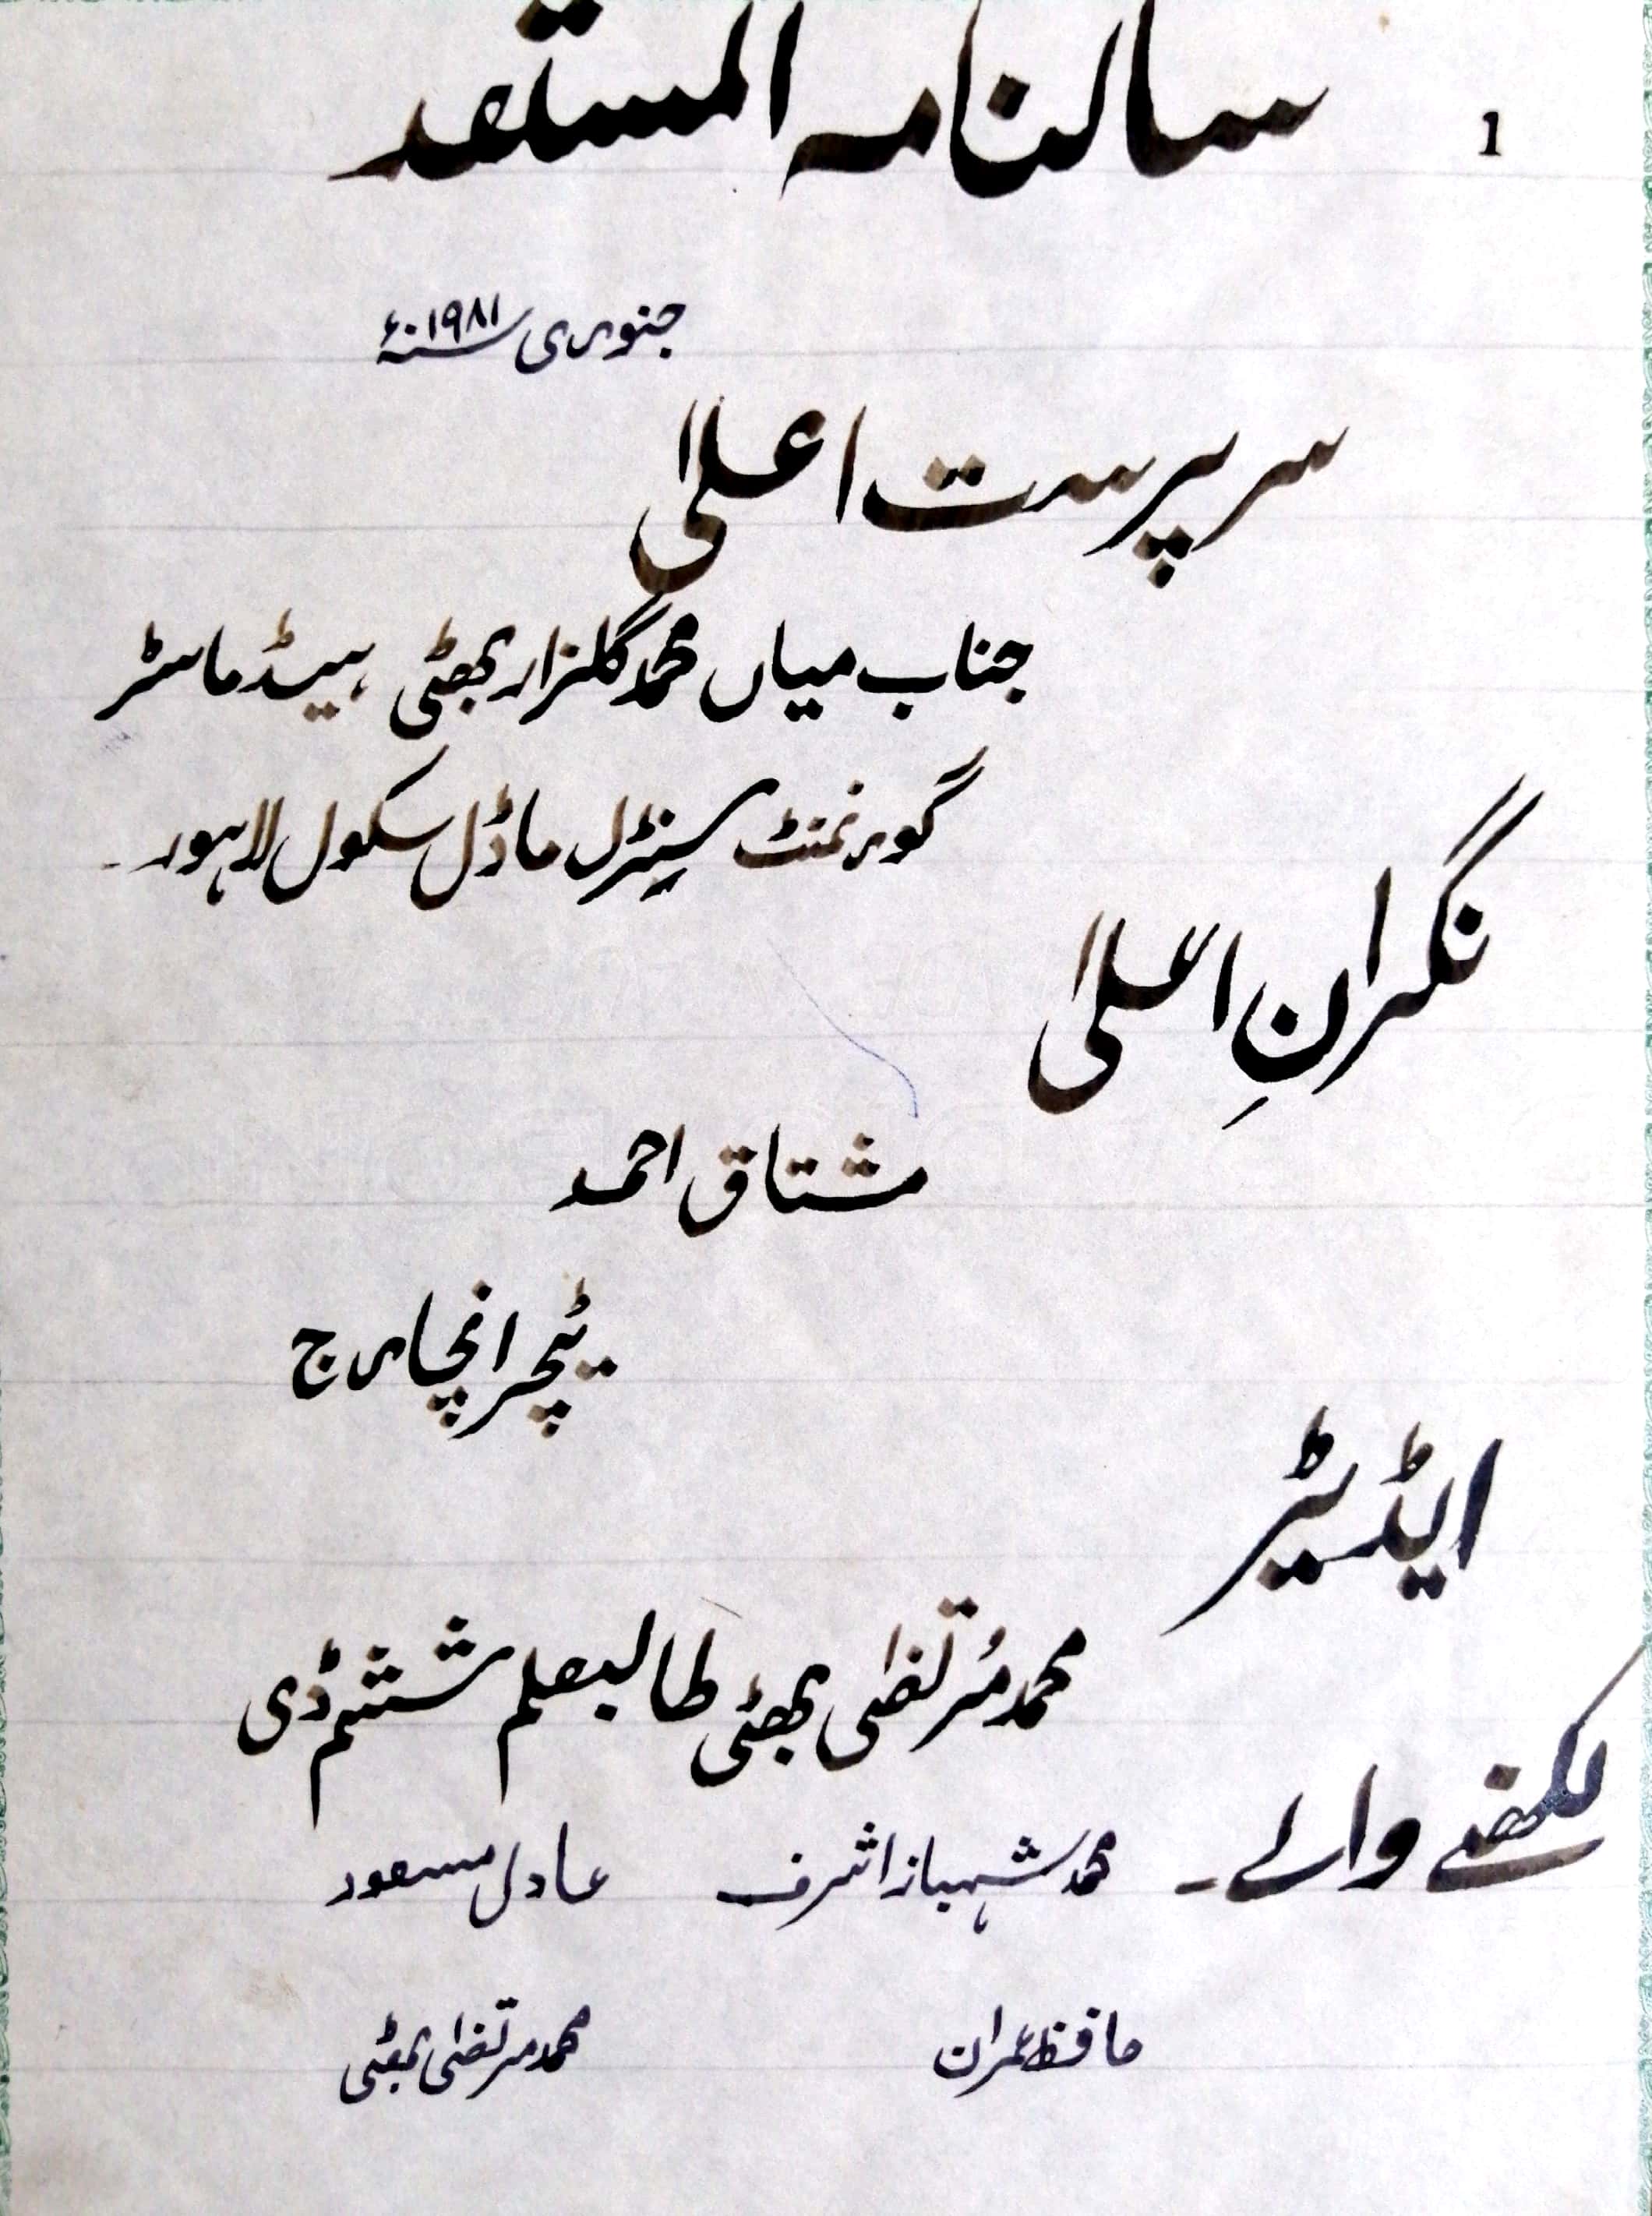 1
سالنامہ المستعد
جنوری سنہ ۱۹۸۱ء
سرپرست اعلیٰ
جناب میاں محمد گلزار بھٹی ہیڈ ماسٹر
گورنمنٹ سنٹرل ماڈل سکول لاہور۔
نگرانِ اعلیٰ
مشتاق احمد
ٹیچر انچارج
ایڈیٹر
محمد مُرتضیٰ بھٹی طالبعلم ششم ڈی
لکھنے والے۔ محمد شہباز اشرف عادل مسعود
حافظ عمران محمد مرتضیٰ بھٹی